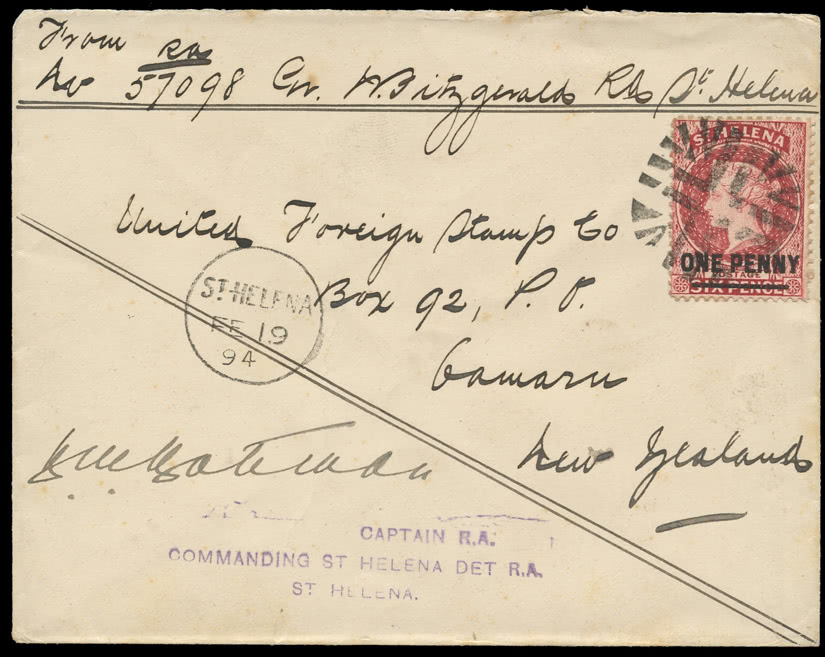 From RA
No 57098 Gr. W. Fitzgerald RA St. Helena
ST HELENA
ONE PENNY
POSTAGE
SIX PENCE
United Foreign Stamp Co
Box 92, P. O.
Oamaru
New Zealand
ST. HELENA
FE 19
94
CAPTAIN R.A.
COMMANDING ST HELENA DET R.A.
ST HELENA.